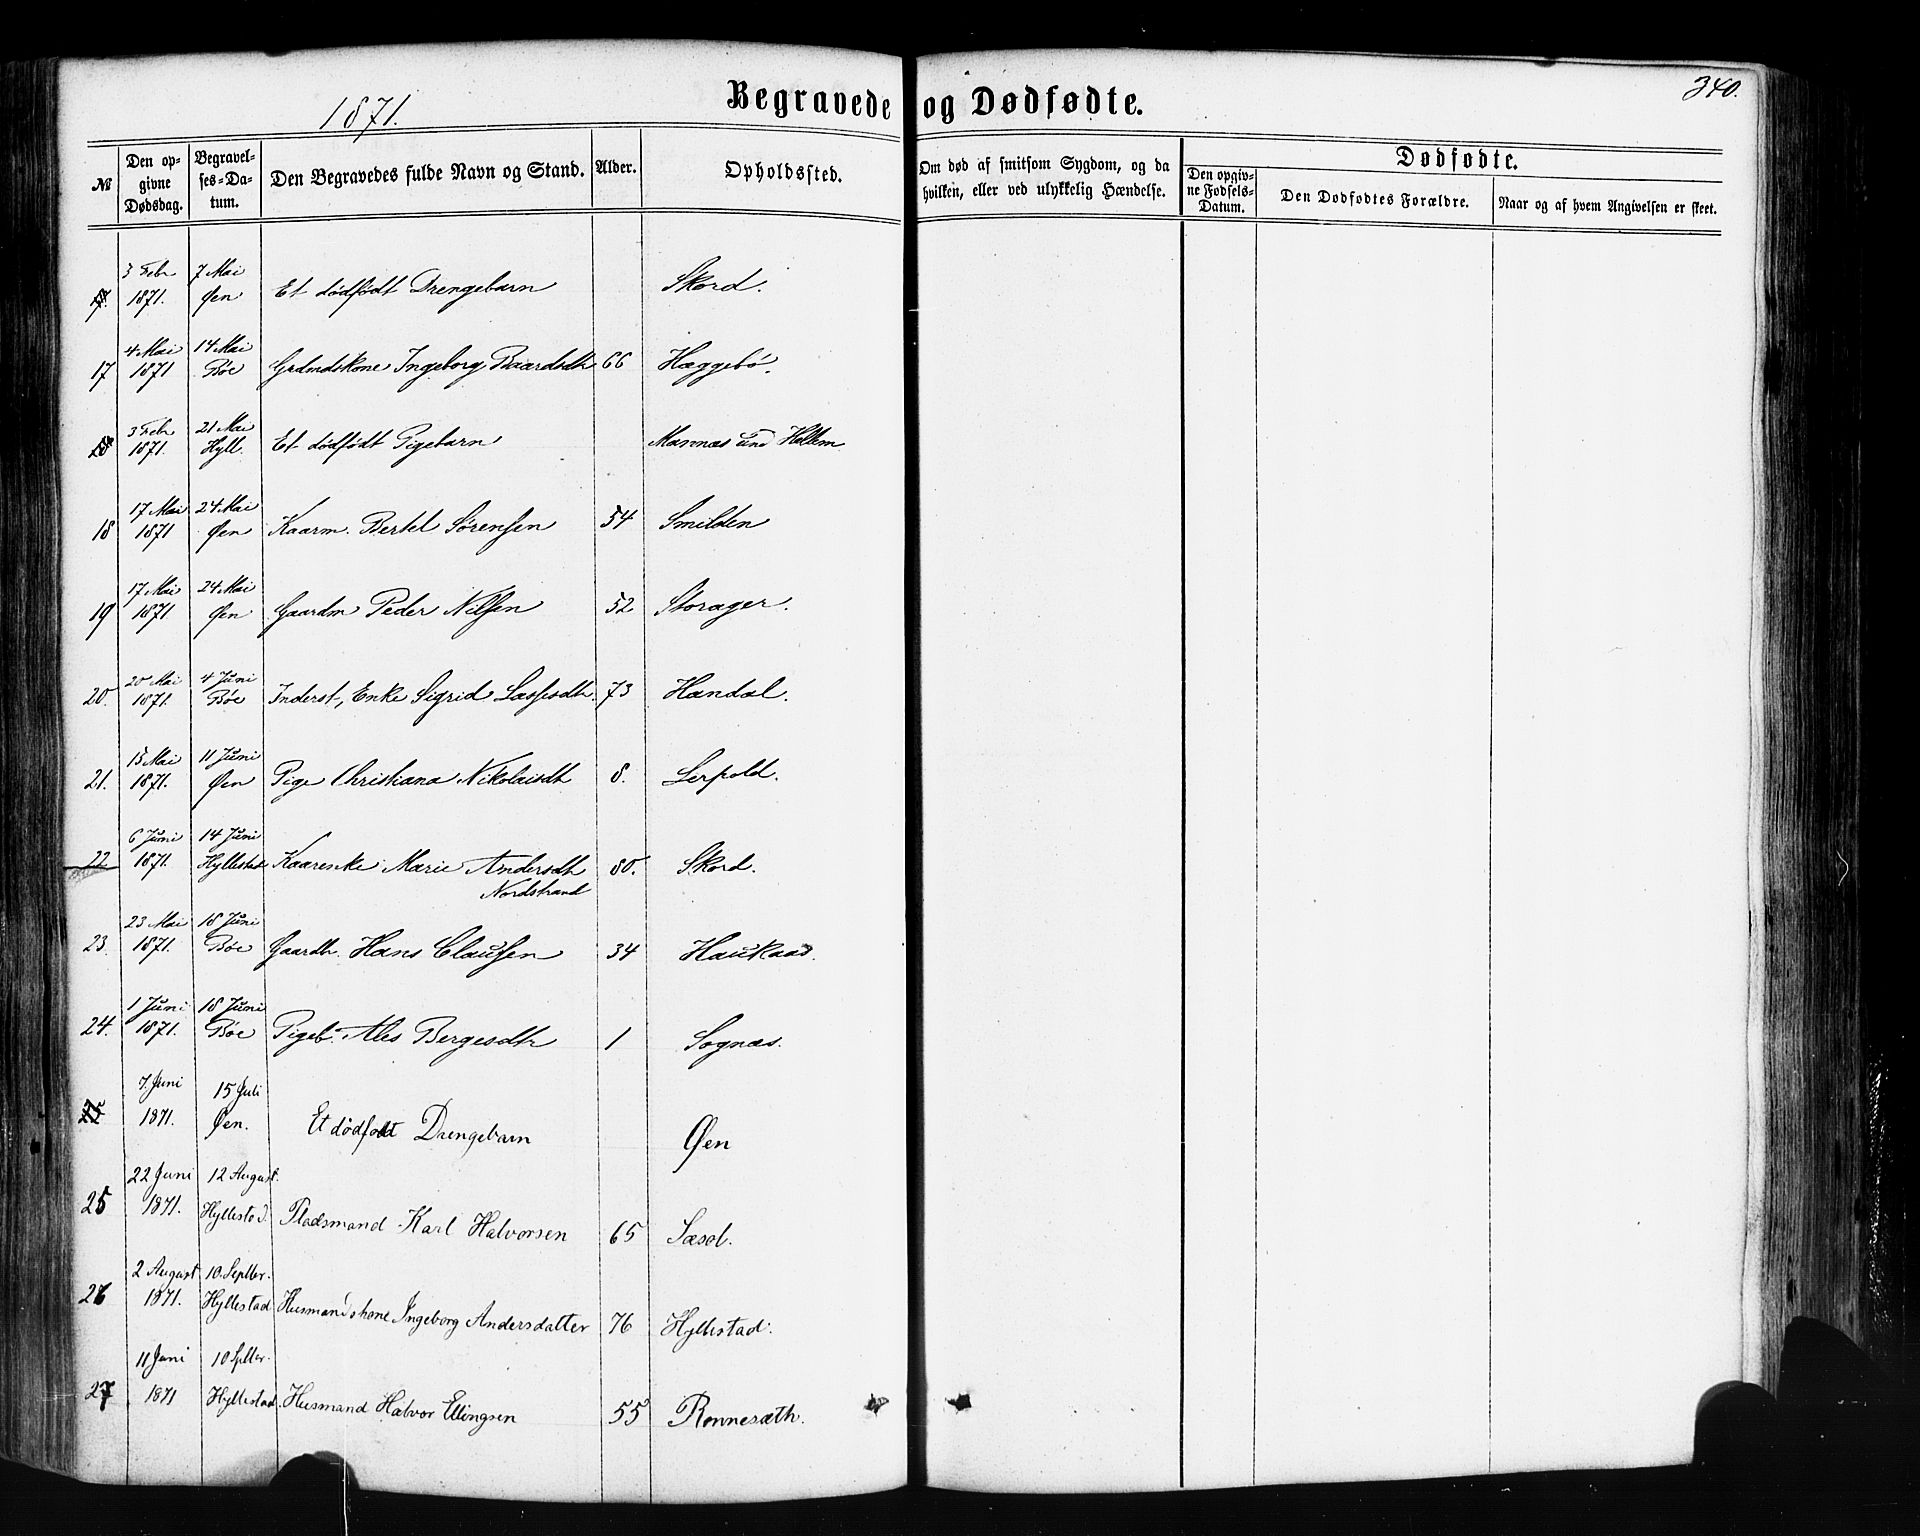 1871.
Begravede og Dødfødte.
340.
№
Den opgivne Dødsdag.
Begravelses-Datum.
Den Begravedes fulde Navn og Stand.
Alder.
Opholdssted.
Om død af smitsom Sygdom, og da hvilken, eller ved ulykkelig Hændelse.
Dødfødte.
Den opgivne Fødsels-Datum.
Den Dødfødtes Forældre.
Naar og af hvem Angivelsen er skeet.
3 Febr 7 Mai
1871. Øen Et dødfødt Drengebarn Skord.
4 Mai 14 Mai
17 1871 Bøe Grdmdskone Ingeborg Baardsdtr 66 Hæggebø.
3 Febr 21 Mai
1871. Hyll. Et dødfødt Pigebarn Mannæs und Hellem
17 Mai 24 Mai
18 1871 Øen Kaarm. Bertel Sørensen 54 Smilden
17 Mai 24 Mai
19 1871 Øen Gaardm Peder Nilsen 52 Storager.
20 Mai 4 Juni
20. 1871. Bøe Inderst, Enke Sigrid Lassesdtr. 73 Handal.
15 Mai 11 Juni
21. 1871. Øen Pige Christiana Nikolaisdtr 8. Leepold.
6 Juni 14 Juni
22 1871. Hyllestad Kaarenke Marie Andersdtr 80. Skord.
Nordstrand
23 Mai 18 Juni
23. 1871. Bøe Gaardbr. Hans Claussen 34 Haukaas.
1 Juni 18 Juni
24. 1871. Bøe Pigeb. Ales Bergesdtr 1 Sognæs.
7. Juni 15 Juli
25 1871. Øen. Et dödfødt Drengebarn Øen
22 Juni 12 August.
25 1871. Hyllestad. Pladsmand Karl Halvorsen 65 Sæsol.
2 August 10. Septbr.
26 1871. Hyllestad Husmandskone Ingeborg Andersdatter 76 Hyllestad.
11 Juni 10 Sptbr.
27 1871 Hyllestad. Husmand Halvor Ellingsen 55 Rønnesæth.